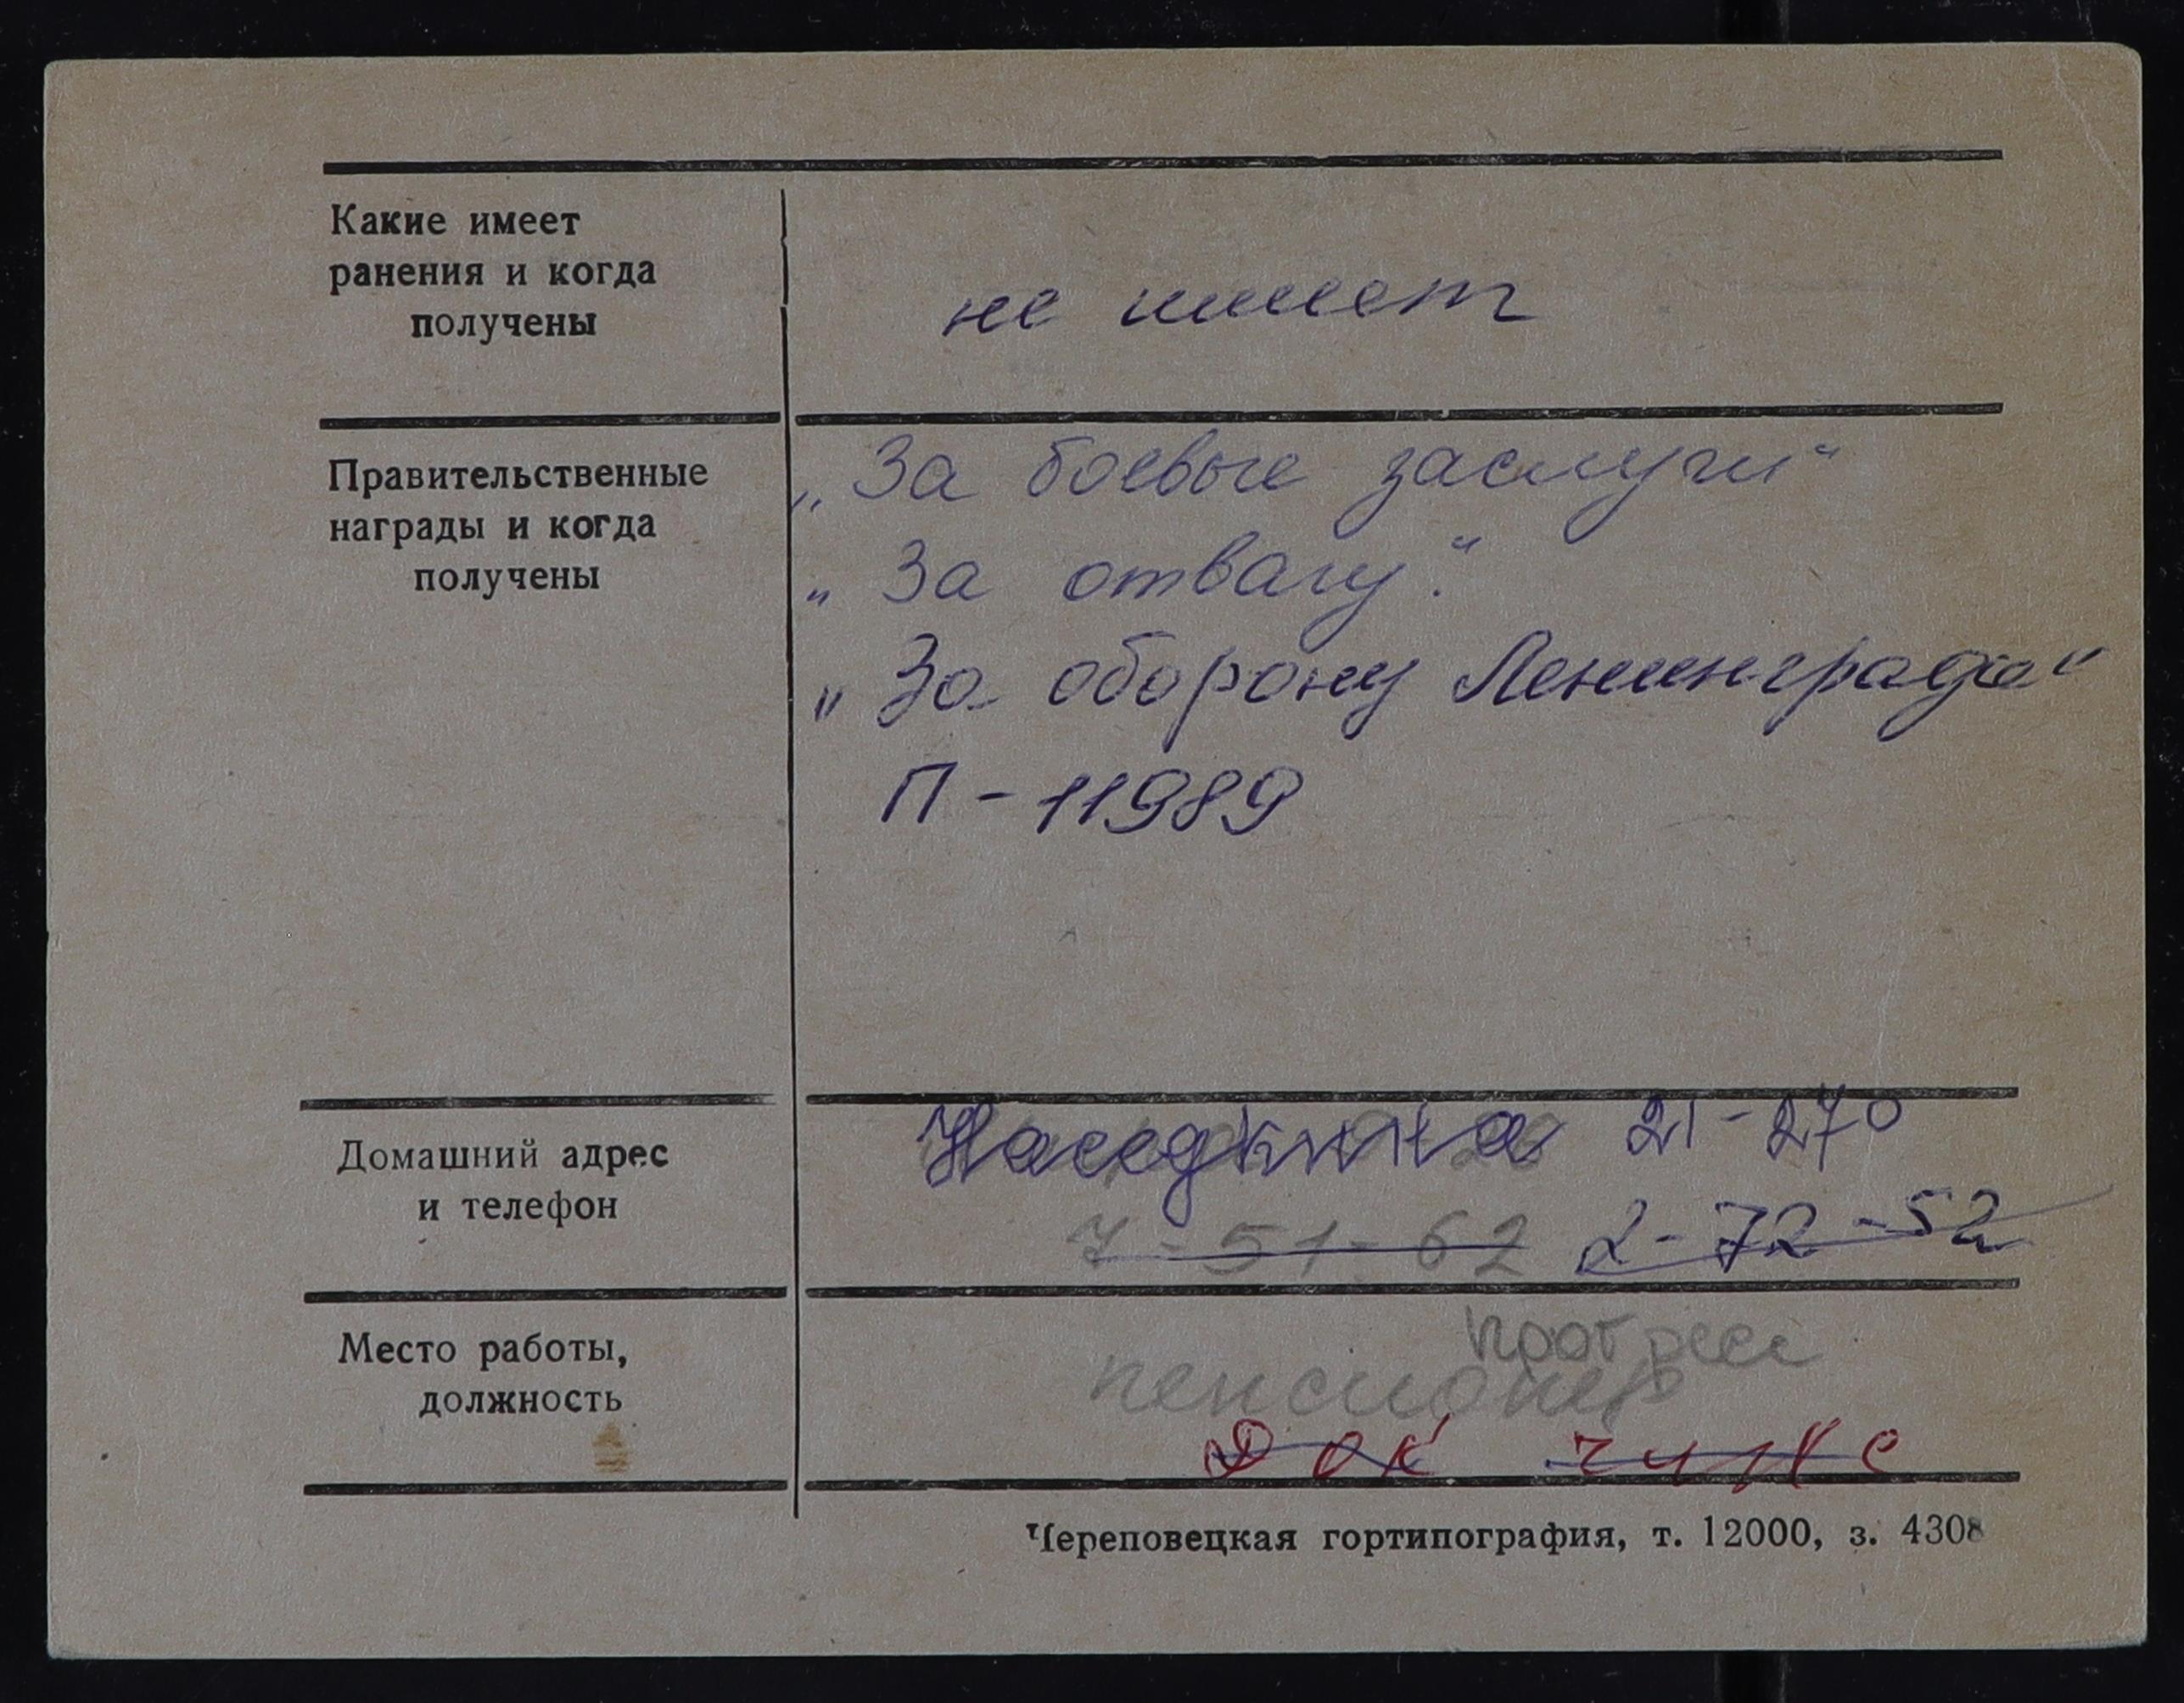 Какие имеет
ранения и когда
получены
не имеет
Правительственные
награды и когда
получены
„За боевые заслуги“
„За отвагу“.
„За оборону Ленинграда“
П-11989
Домашний адрес
и телефон
Наседкина 21-270
7-51-62 2-72-52
Место работы,
должность
прогресс
пенсионер
ДОК
Череповецкая гортипография, т. 12000, з. 4308